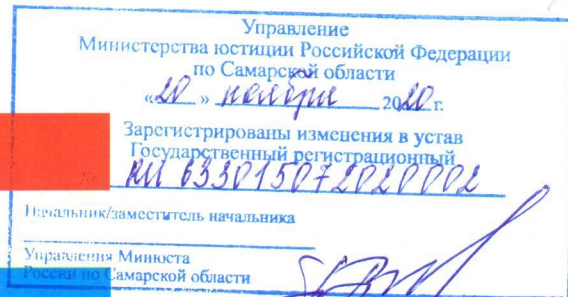 Управление
Министерства юстиции Российской Федерации
по Самарской области
«20» ноября 2020 г.
Зарегистрированы изменения в устав
Государственный регистрационный
RU 633015072020002
Начальник/заместитель начальника
Управления Минюста
России по Самарской области